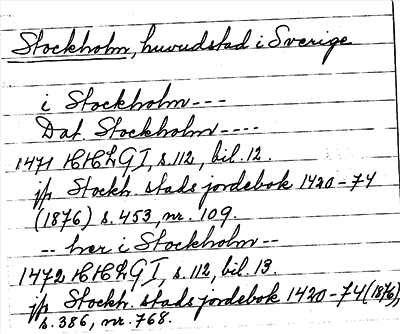 Stockholm, huvudstad i Sverige
i Stockholm ---
Dat. Stockholm ----
1471 HHLG I, s.112, bil. 12.
jp Stockh. stads jordebok 1420-74
(1876) s. 453, nr. 109.
-- her i Stockholm --
1472 HHLG I, s.112, bil. 13.
jp Stockh. stads jordebok 1420-74 (1876),
s. 386, nr. 768.